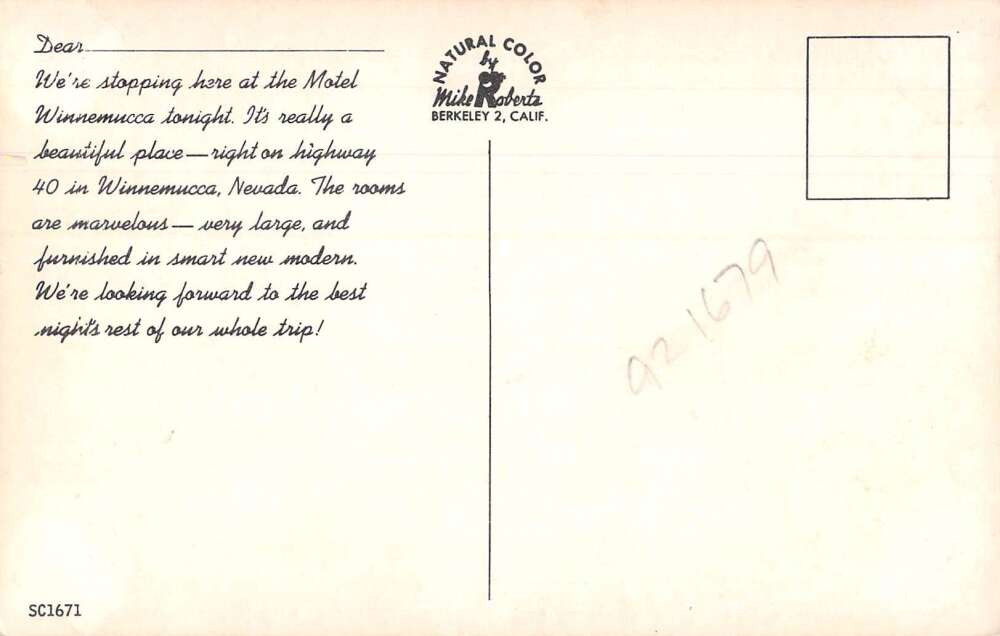 Dear
We're stopping here at the Motel
Winnemucca tonight. It's really a
beautiful place—right on highway
40 in Winnemucca, Nevada. The rooms
are marvelous—very large, and
furnished in smart new modern.
We're looking forward to the best
night's rest of our whole trip!
NATURAL COLOR
by
Mike Roberts
BERKELEY 2, CALIF.
92 1679
SC1671